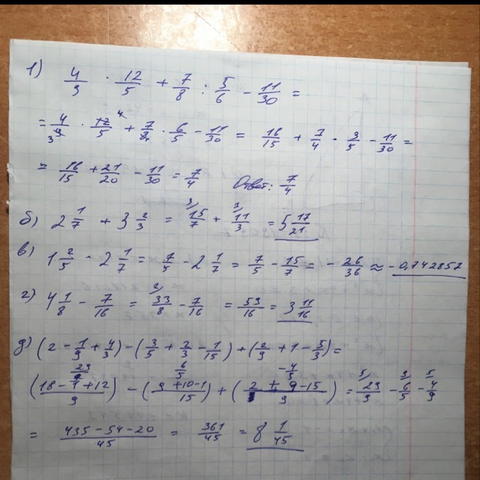 1) 4/9 · 12/5 + 7/8 : 5/6 − 11/30 =
= 4/9 3 · 12/5 4 + 7/8 · 6/5 − 11/30 = 16/15 + 7/4 · 3/5 − 11/30 =
= 16/15 + 21/20 − 11/30 = 7/4 Ответ: 7/4
б) 2 1/7 + 3 2/3 = 15/7 + 11/3 = 5 17/21
в) 1 2/5 − 2 1/7 = 7/5 − 2 1/7 = 7/5 − 15/7 = − 26/36 ≈ −0,742857
г) 4 1/8 − 7/16 = 2/ 33/8 − 7/16 = 53/16 = 3 11/16
д) (2 − 1/9 + 4/3) − (3/5 + 2/3 − 1/15) + (2/9 + 1 − 5/3) =
29 6/5 −4/5
(18 − 1 + 12)/9 − (9 + 10 − 1)/15 + (2 + 9 − 15)/9 = 5/ 29/9 − 9/ 6/5 − 5/ 4/9
= 435 − 54 − 20/45 = 361/45 = 8 1/45